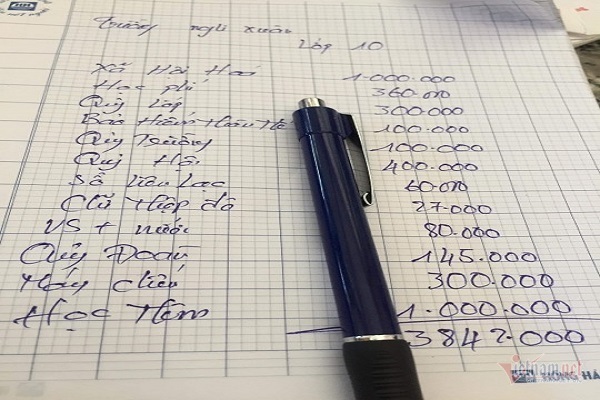 Trường Nghi Xuân
Lớp 10
Xã Hội Hoá 1.000.000
Học phí 360.000
Quỹ lớp 300.000
Bảo Hiểm Thân Thể 100.000
Quỹ Trường 100.000
Quỹ Hội 400.000
Sổ liên lạc 60.000
Chữ thập đỏ 27.000
VS + nước 80.000
Quỹ Đoàn 145.000
Máy chiếu 300.000
Học Thêm 1.000.000
3842.000
vietnamnet
HONG HA